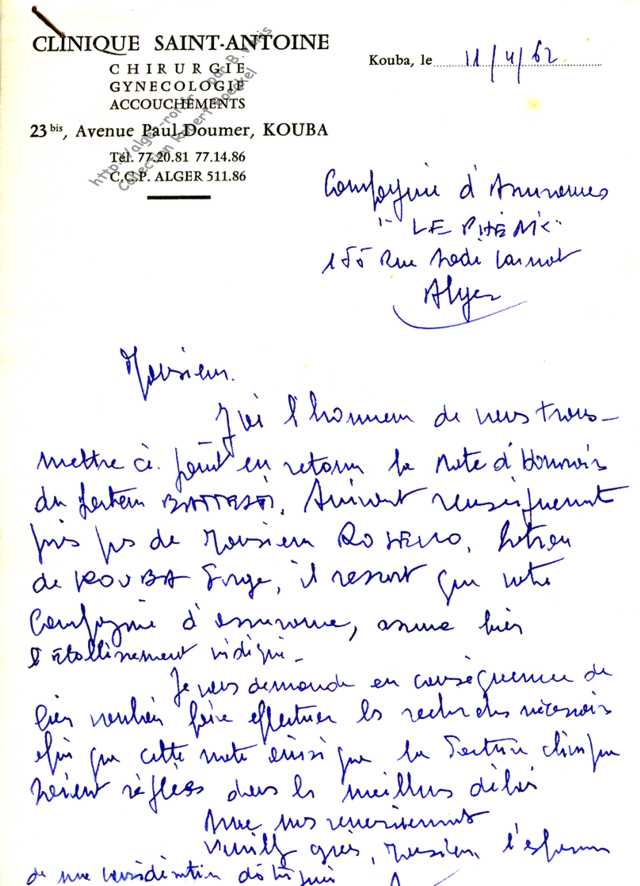 CLINIQUE SAINT-ANTOINE
CHIRURGIE
GYNECOLOGIE
ACCOUCHEMENTS
23 bis, Avenue Paul-Doumer, KOUBA
Tél. 77.20.81 77.14.86
C.C.P. ALGER 511.86
Kouba, le 11/4/62
Compagnie d'Assurances
"LE PHENIX"
155 Rue Sadi Carnot
Alger
Monsieur.
J'ai l'honneur de vous trans-
mettre ci-joint en retour la Note d'honoraires
du Docteur Suivant renseignement
pris près de Monsieur ROSELLO, Patron
de KOUBA Garage, il ressort que votre
Compagnie d'assurance, assure bien
l'Etablissement indiqué.
Je vous demande en conséquence de
bien vouloir faire effectuer les recherches nécessaires
afin que cette note ainsi que la facture clinique
soient réglées dans les meilleurs délais
Avec mes remerciements
veuillez agréer, Monsieur, l'expression
de ma considération distinguée